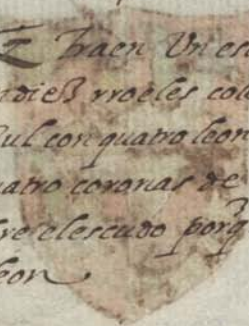 Traen Vn es
adieß rroeles col
zul con quatro leon
uatro coronas de
re elescudo porq̃
leon